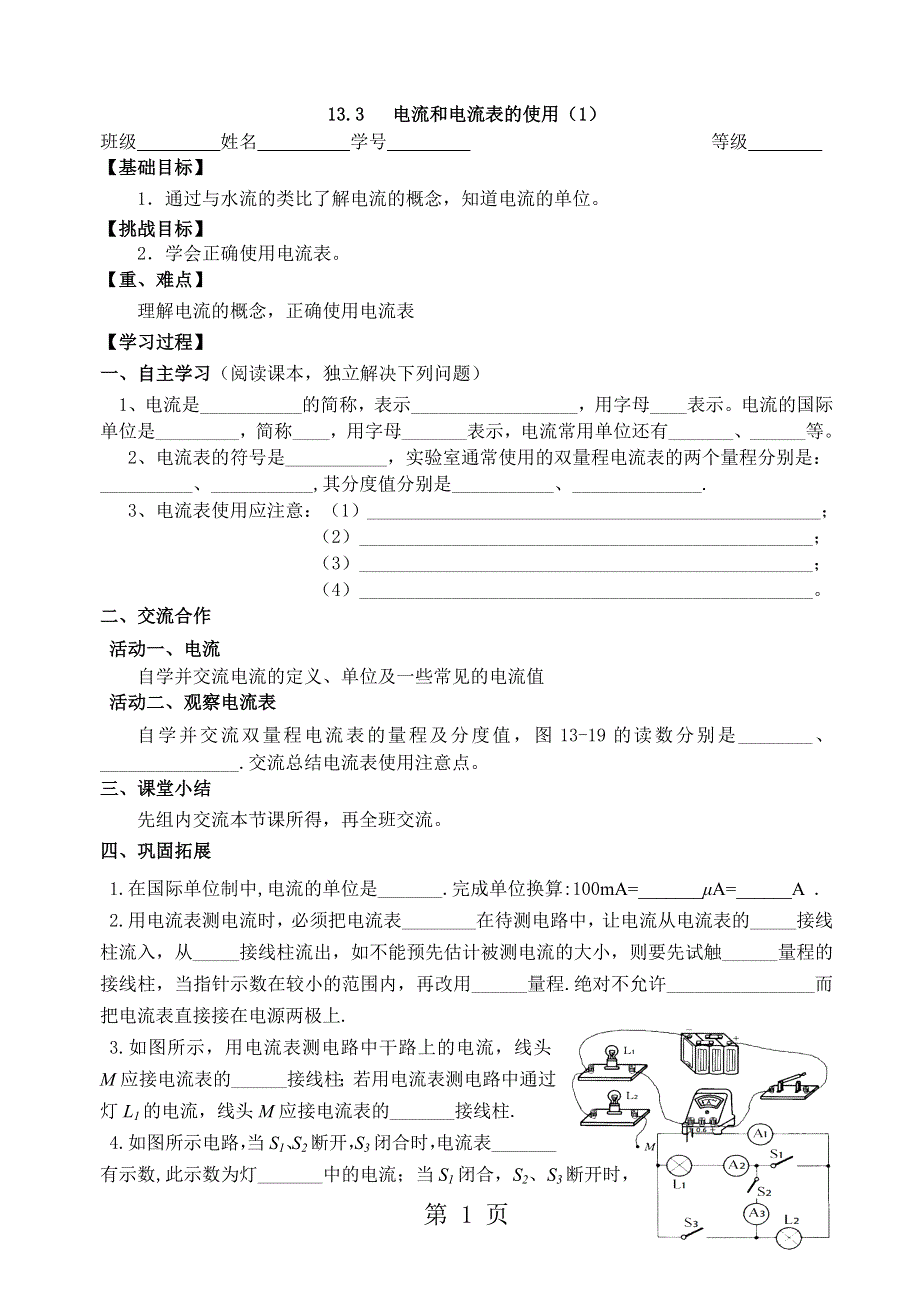 13.3 电流和电流表的使用（1）
班级_________姓名__________学号_________ 等级________
【基础目标】
1．通过与水流的类比了解电流的概念，知道电流的单位。
【挑战目标】
2．学会正确使用电流表。
【重、难点】
理解电流的概念，正确使用电流表
【学习过程】
一、自主学习（阅读课本，独立解决下列问题）
1、电流是___________的简称，表示__________________，用字母____表示。电流的国际
单位是_________，简称____，用字母_______表示，电流常用单位还有_______、______等。
2、电流表的符号是___________，实验室通常使用的双量程电流表的两个量程分别是：
__________、___________,其分度值分别是___________、______________.
3、电流表使用应注意：（1）_________________________________________________；
（2）_________________________________________________；
（3）_________________________________________________；
（4）_________________________________________________。
二、交流合作
活动一、电流
自学并交流电流的定义、单位及一些常见的电流值
活动二、观察电流表
自学并交流双量程电流表的量程及分度值，图 13-19 的读数分别是________、
_______________.交流总结电流表使用注意点。
三、课堂小结
先组内交流本节课所得，再全班交流。
四、巩固拓展
1.在国际单位制中,电流的单位是_______.完成单位换算:100mA=_______μA=______A .
2.用电流表测电流时，必须把电流表________在待测电路中，让电流从电流表的_____接线
柱流入，从_____接线柱流出，如不能预先估计被测电流的大小，则要先试触______量程的
接线柱，当指针示数在较小的范围内，再改用______量程.绝对不允许________________而
把电流表直接接在电源两极上.
3.如图所示，用电流表测电路中干路上的电流，线头
M应接电流表的______接线柱；若用电流表测电路中通过
灯L1的电流，线头M应接电流表的_______接线柱.
4.如图所示电路,当S1、S2断开,S3闭合时,电流表_______
有示数,此示数为灯_______中的电流；当S1闭合，S2、S3断开时，
L1
L2
− +
A
0.6
M
A1
L1
A2
S1
S2
A3
S3
L2
第 1 页